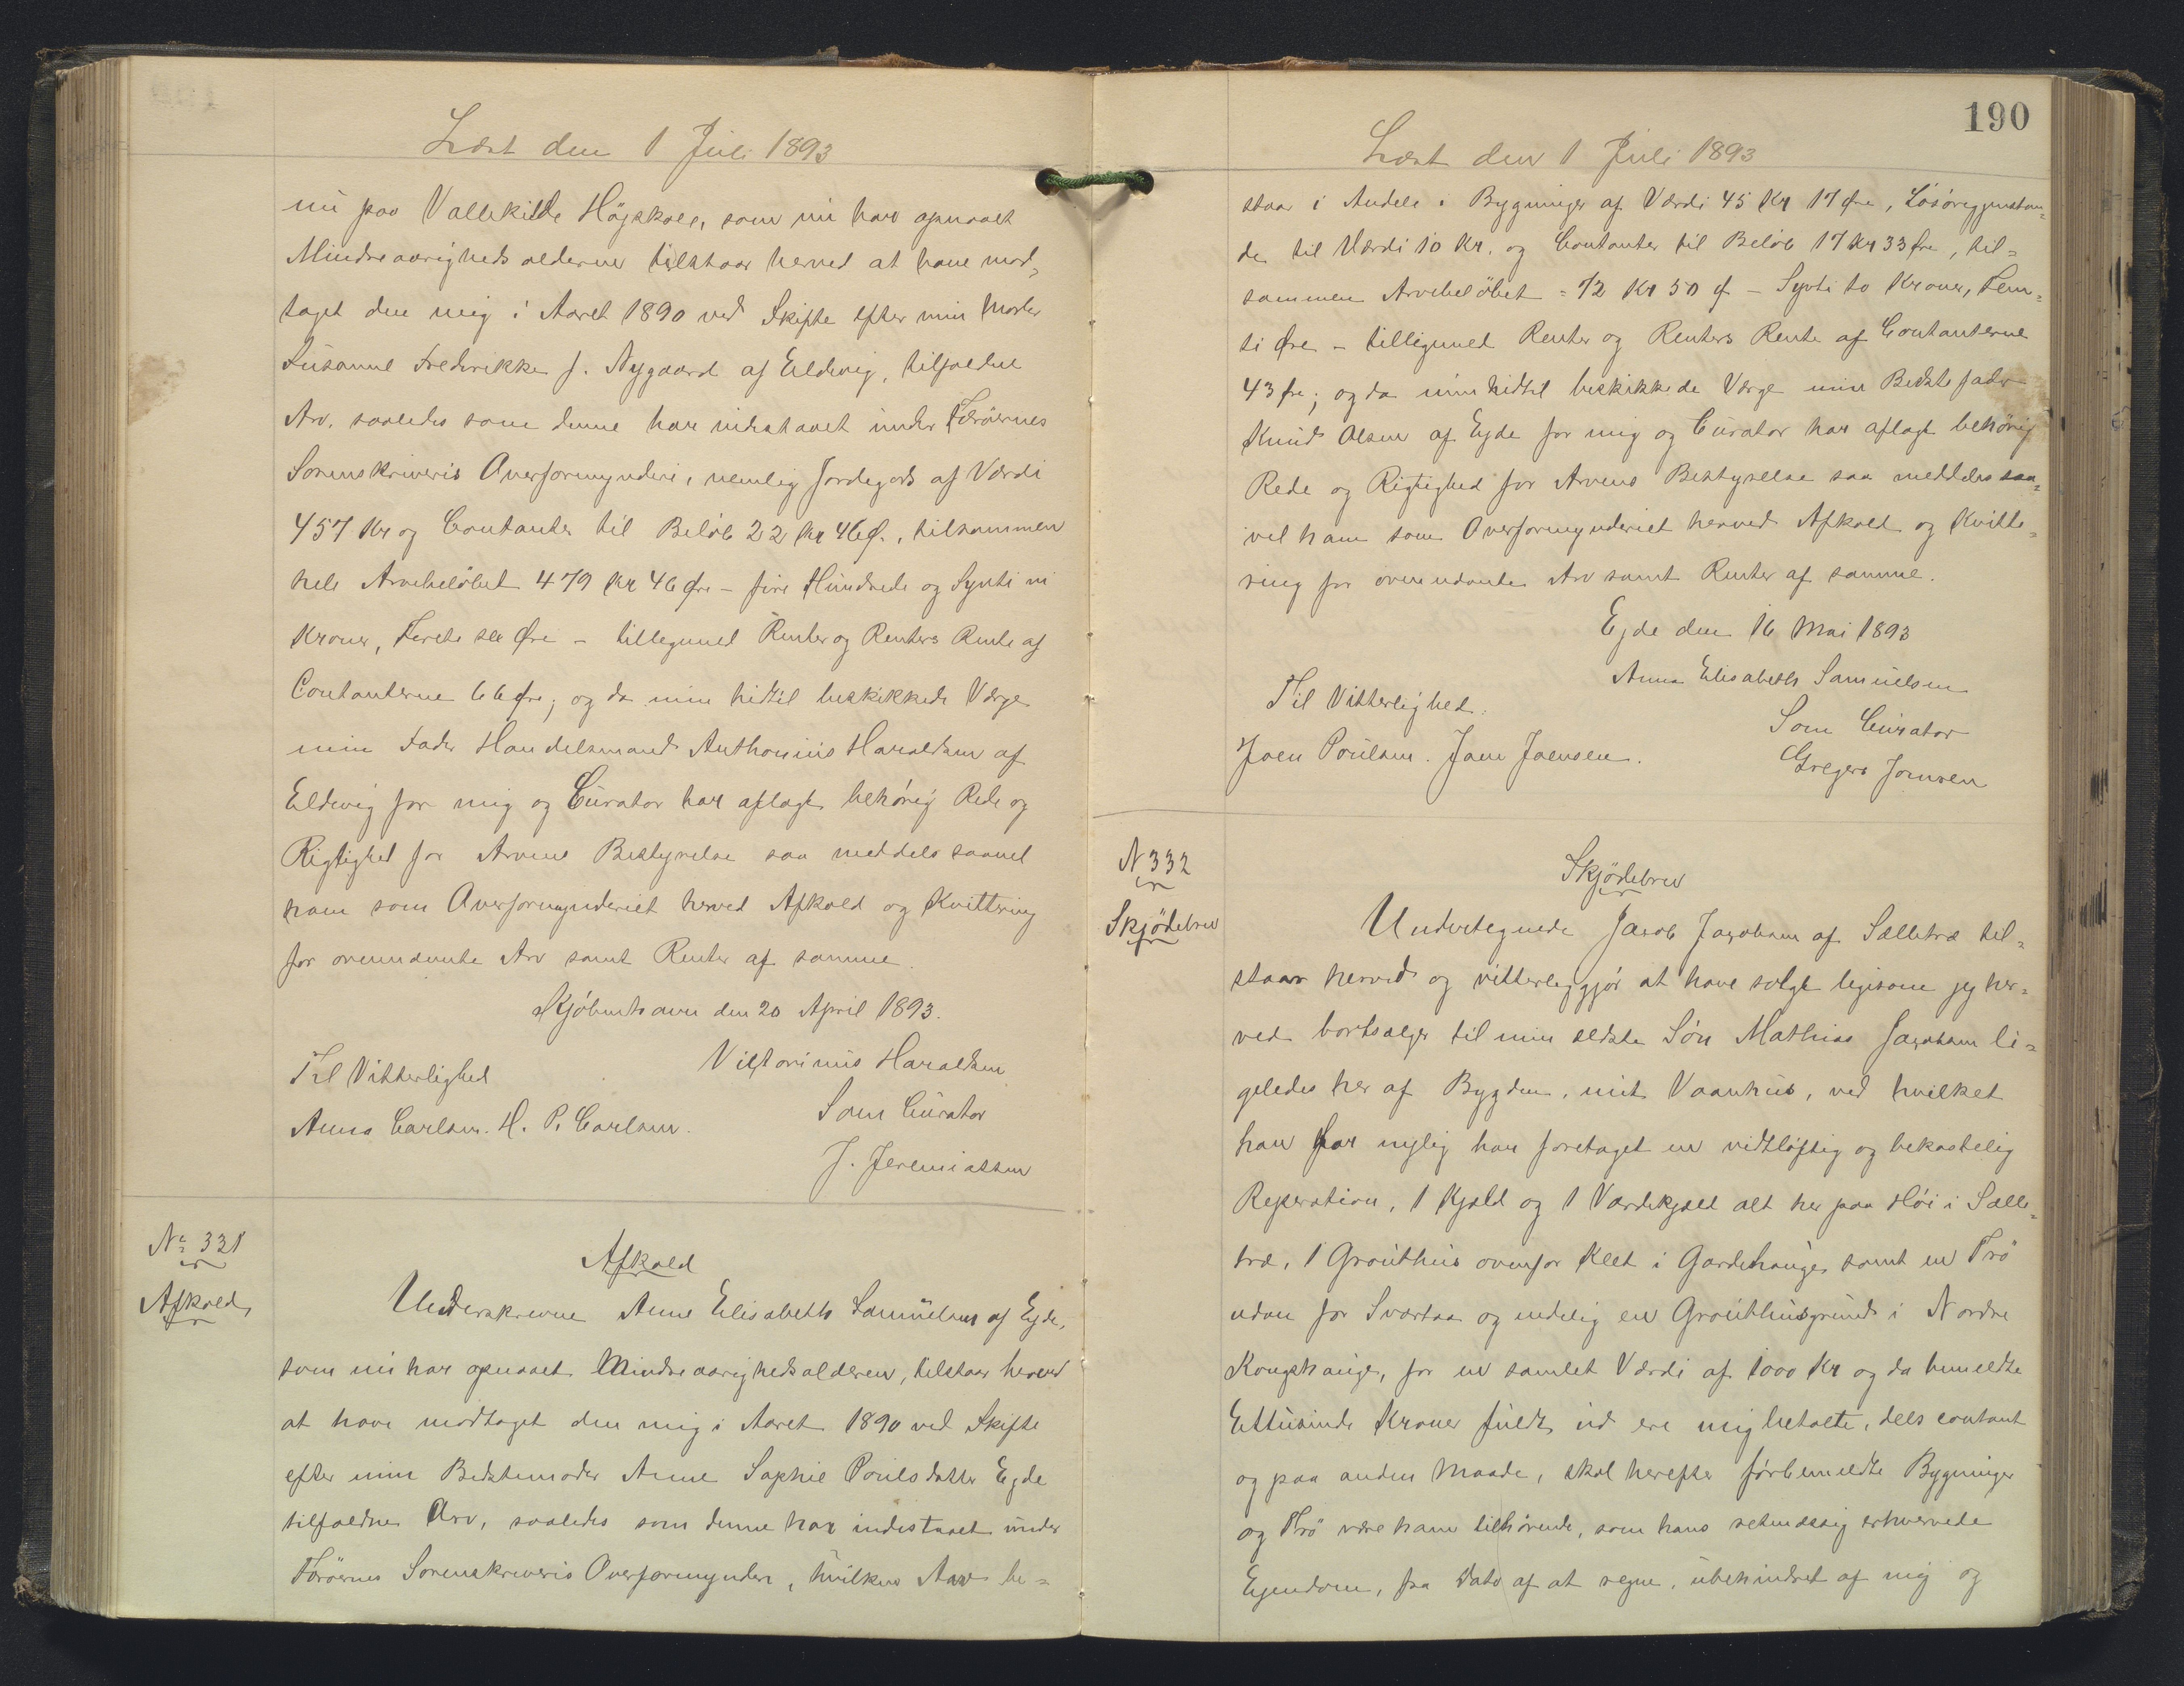 Læst den 1 Juli 1893
nu paa Vallekilde Höjskole, som nu har opnaaet
Mindreaarighedsalderen tilstaar herved at have mod=
taget den mig i Aaret 1890 ved Skifte efter min Moder
Susanne Fredrikke f. Nygaard af Eldevig, tilfaldne
Arv, saaledes som denne har indestaaet under Færöernes
Sorenskriveris Overformynderi, nemlig Jordegods af Værdi
457 Kr og Contanter til Belöb 22 Kr 46 Ø., tilsammen
hele Arvebelöbet 479 Kr 46 Øre - fire Hundrede og Sytti ni
Kroner, Fireti sex Øre - tilligemed Renter og Renters Rente af
Contanterne 66 Øre; og da min hidtil beskikkede Værge
min Fader Handelsmand Anthonius Haraldsen af
Eldevig for mig og Curator har aflagt behörig Rede og
Rigtighed for Arvens Bestyrelse saa meddeles saavel
ham som Overformynderiet herved Afkald og Kvittering
for ovennævnte Arv samt Renter af samme.
Kjöbenhavn den 20 April 1893.
Til Vitterlighed
Viktorinus Haraldsen
Anna Carlsen. H. P. Carlsen.
Som Curator
J. Jeremiassen
No 331
Afkald
Afkald
Underskrevne Anne Elisabeth Samuelsen af Ejde,
som nu har opnaaet Mindreaarighedsalderen, tilstaar herved
at have modtaget den mig i Aaret 1890 ved Skifte
efter min Bedstemoder Anne Sophie Poulsdatter Ejde
tilfaldne Arv, saaledes som denne har indestaaet under
Færöernes Sorenskriveris Overformynderi, hvilken Arv be=
190
Læst den 1 Juli 1893
staar i Andele i Bygninger af Værdi 45 Kr 17 Øre, Lösöregjenstan=
de til Værdi 10 Kr. og Contanter til Belöb 17 Kr 33 Øre, til=
sammen Arvebelöbet = 72 Kr 50 Ø - Sytti to Kroner, Fem=
ti Øre - tilligemed Renter og Renters Rente af Contanterne
43 Øre; og da min hidtil beskikkede Værge min Bedstefader
Knud Olsen af Ejde for mig og Curator har aflagt behörig
Rede og Rigtighed for Arvens Bestyrelse saa meddeles saa=
vel ham som Overformynderiet herved Afkald og Kvitte=
ring for ovennævnte Arv samt Renter af samme.
Ejde den 16 Mai 1893
Anna Elisabeth Samuelsen
Til Vitterlighed.
Som Curator
Joen Poulsen. Jane Joensen.
Gregers Joensen
N 332
Skjödebrev
Skjödebrev
Undertegnede Jacob Jacobsen af Sælletræ til=
staar herved og vitterleggjör at have solgt ligesom jeg her=
ved bortsælger til min ældste Sön Mathias Jacobsen li=
geledes her af Bygden, mit Vaanhus, ved hvilket
han har nylig har foretaget en vidtlöftig og bekostelig
Reperation, 1 Kjald og 1 Værdekjald alt her paa Höi i Sælle=
træ, 1 Grouthus ovenfor Klet i Gardehauge samt en Trö
udan for Svartaa og endelig en Grouthusgrund i Nordre
Kongshauge, for en samlet Værdi af 1000 Kr og da bemeldte
Ettusinde Kroner fuldt ud ere mig betalte, dels contant
og paa anden Maade, skal herefter förbemeldte Bygninger
og Trö være ham tilhörende, som hans retmæssig erhvervede
Ejendom, fra Dato af at regne, ubehindret af mig og